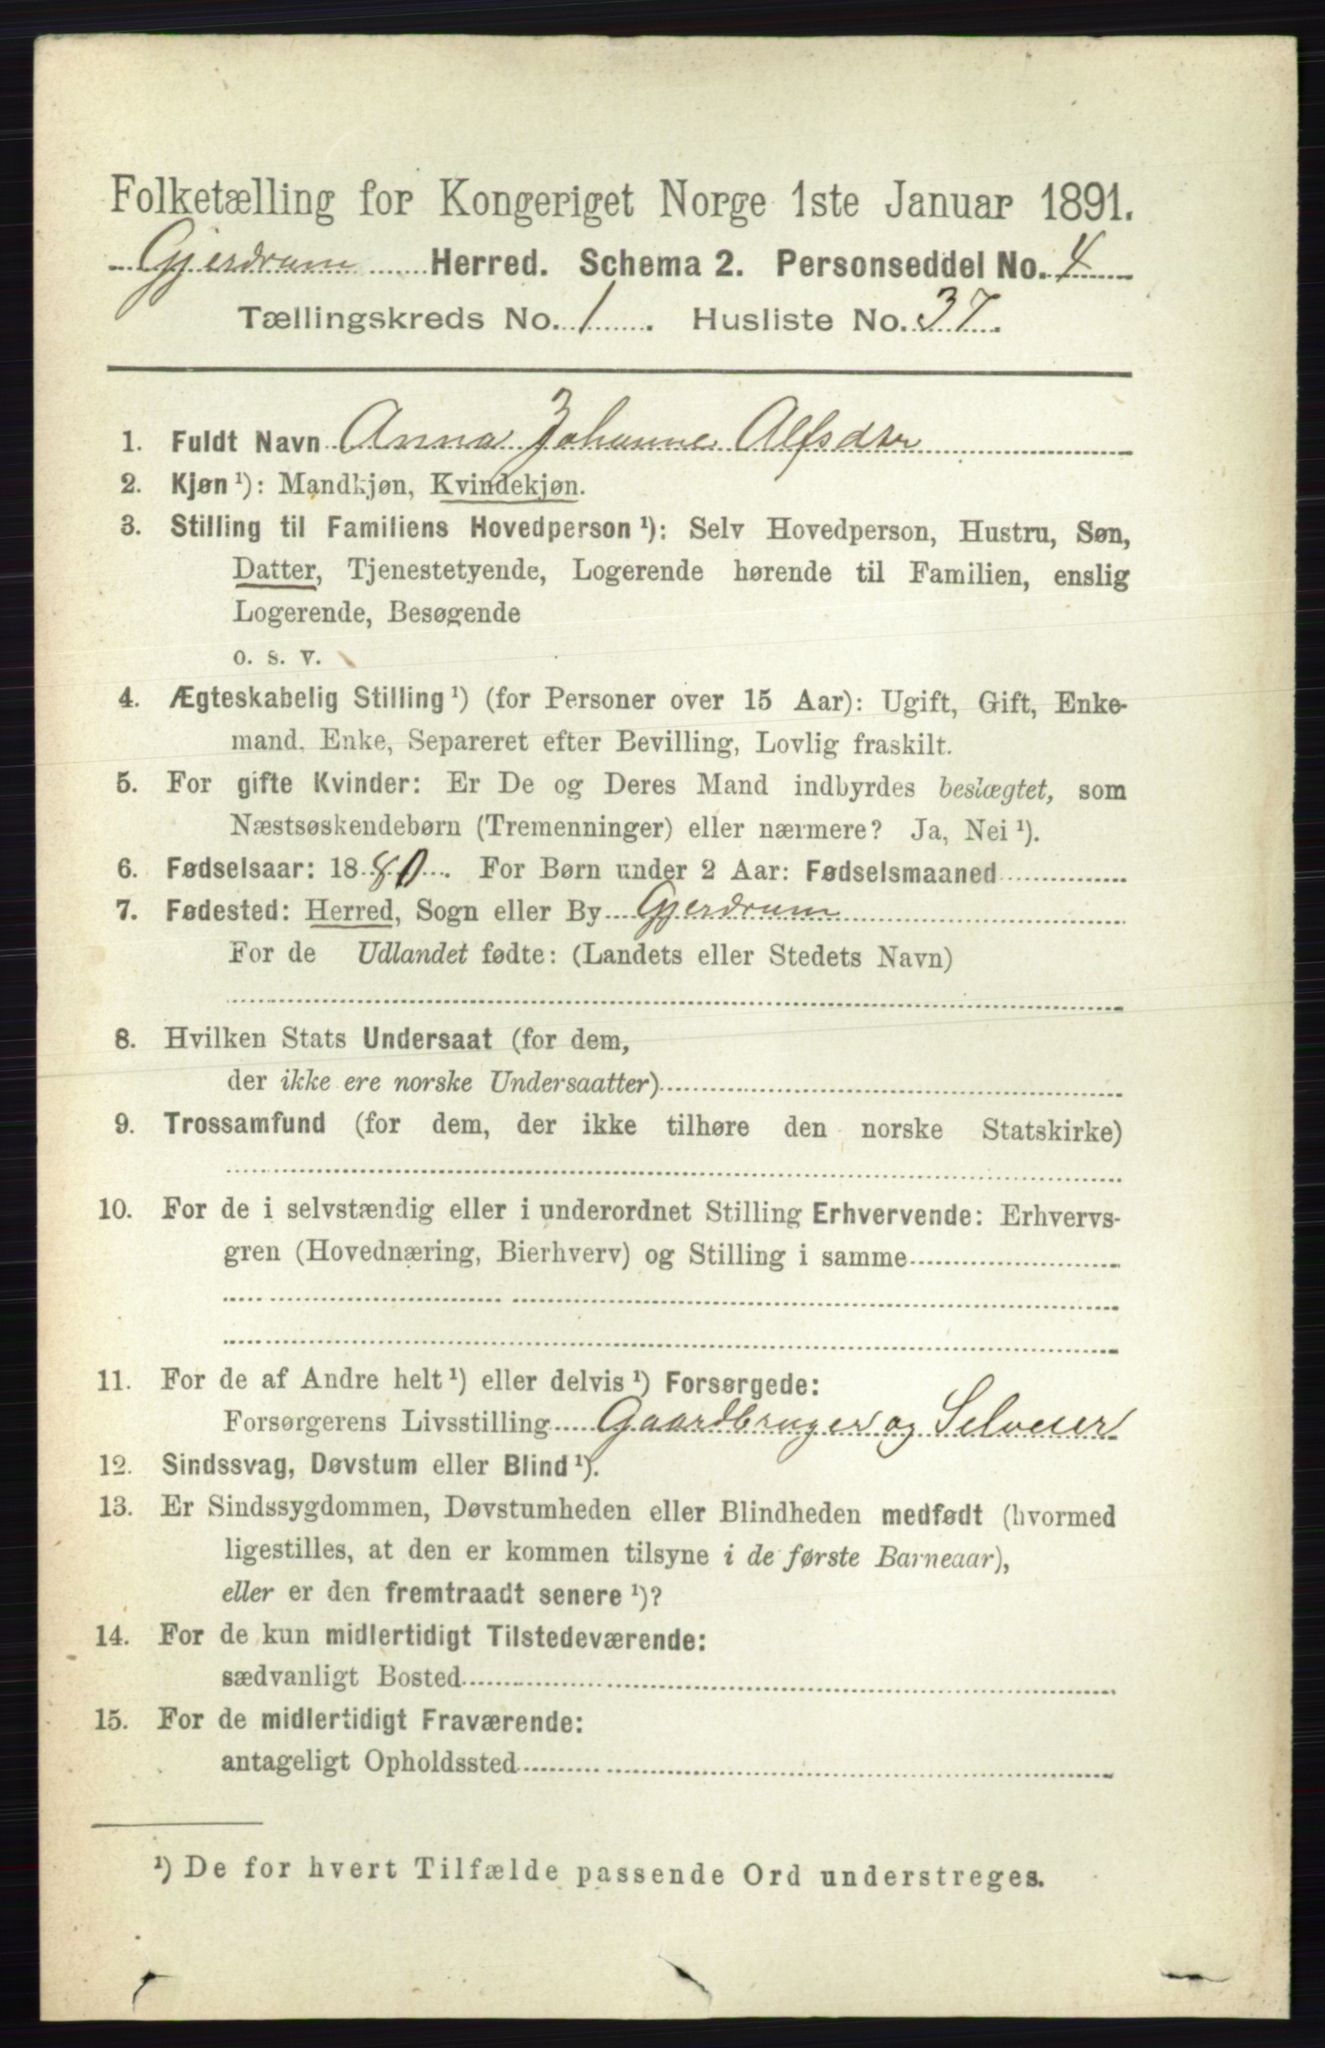 Folketælling for Kongeriget Norge 1ste Januar 1891.
Gjerdrum Herred. Schema 2. Personseddel No. 4
Tællingskreds No. 1. Husliste No. 37.
1. Fuldt Navn Anna Johanne Alfsdtr
2. Kjøn ¹): Mandkjøn, Kvindekjøn.
3. Stilling til Familiens Hovedperson ¹): Selv Hovedperson, Hustru, Søn,
Datter, Tjenestetyende, Logerende hørende til Familien, enslig
Logerende, Besøgende
o. s. v.
4. Ægteskabelig Stilling ¹) (for Personer over 15 Aar): Ugift, Gift, Enke-
mand, Enke, Separeret efter Bevilling, Lovlig fraskilt.
5. For gifte Kvinder: Er De og Deres Mand indbyrdes beslægtet, som
Næstsøskendebørn (Tremenninger) eller nærmere? Ja, Nei ¹).
6. Fødselsaar: 1880. For Børn under 2 Aar: Fødselsmaaned
7. Fødested: Herred, Sogn eller By Gjerdrum
For de Udlandet fødte: (Landets eller Stedets Navn)
8. Hvilken Stats Undersaat (for dem,
der ikke ere norske Undersaatter)
9. Trossamfund (for dem, der ikke tilhøre den norske Statskirke)
10. For de i selvstændig eller i underordnet Stilling Erhvervende: Erhvervs-
gren (Hovednæring, Bierhverv) og Stilling i samme
11. For de af Andre helt ¹) eller delvis ¹) Forsørgede:
Forsørgerens Livsstilling Gaardbruger og Selveier
12. Sindssvag, Døvstum eller Blind ¹).
13. Er Sindssygdommen, Døvstumheden eller Blindheden medfødt (hvormed
ligestilles, at den er kommen tilsyne i de første Barneaar),
eller er den fremtraadt senere ¹)?
14. For de kun midlertidigt Tilstedeværende:
sædvanligt Bosted
15. For de midlertidigt Fraværende:
antageligt Opholdssted
¹) De for hvert Tilfælde passende Ord understreges.